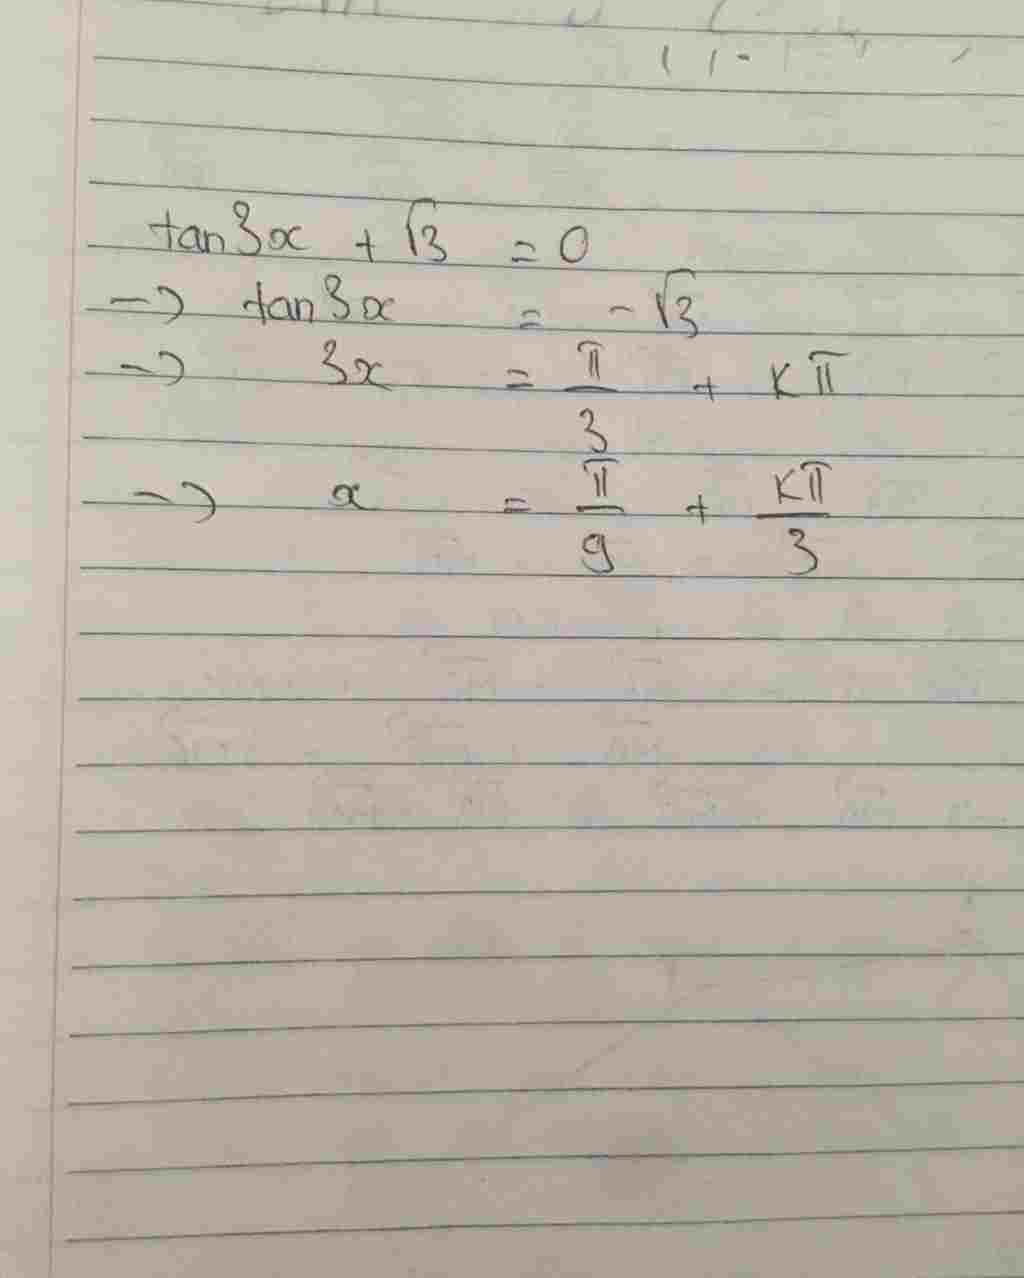 tan3x + √3 = 0
→ tan3x = -√3
→ 3x = π/3 + kπ
→ x = π/9 + kπ/3